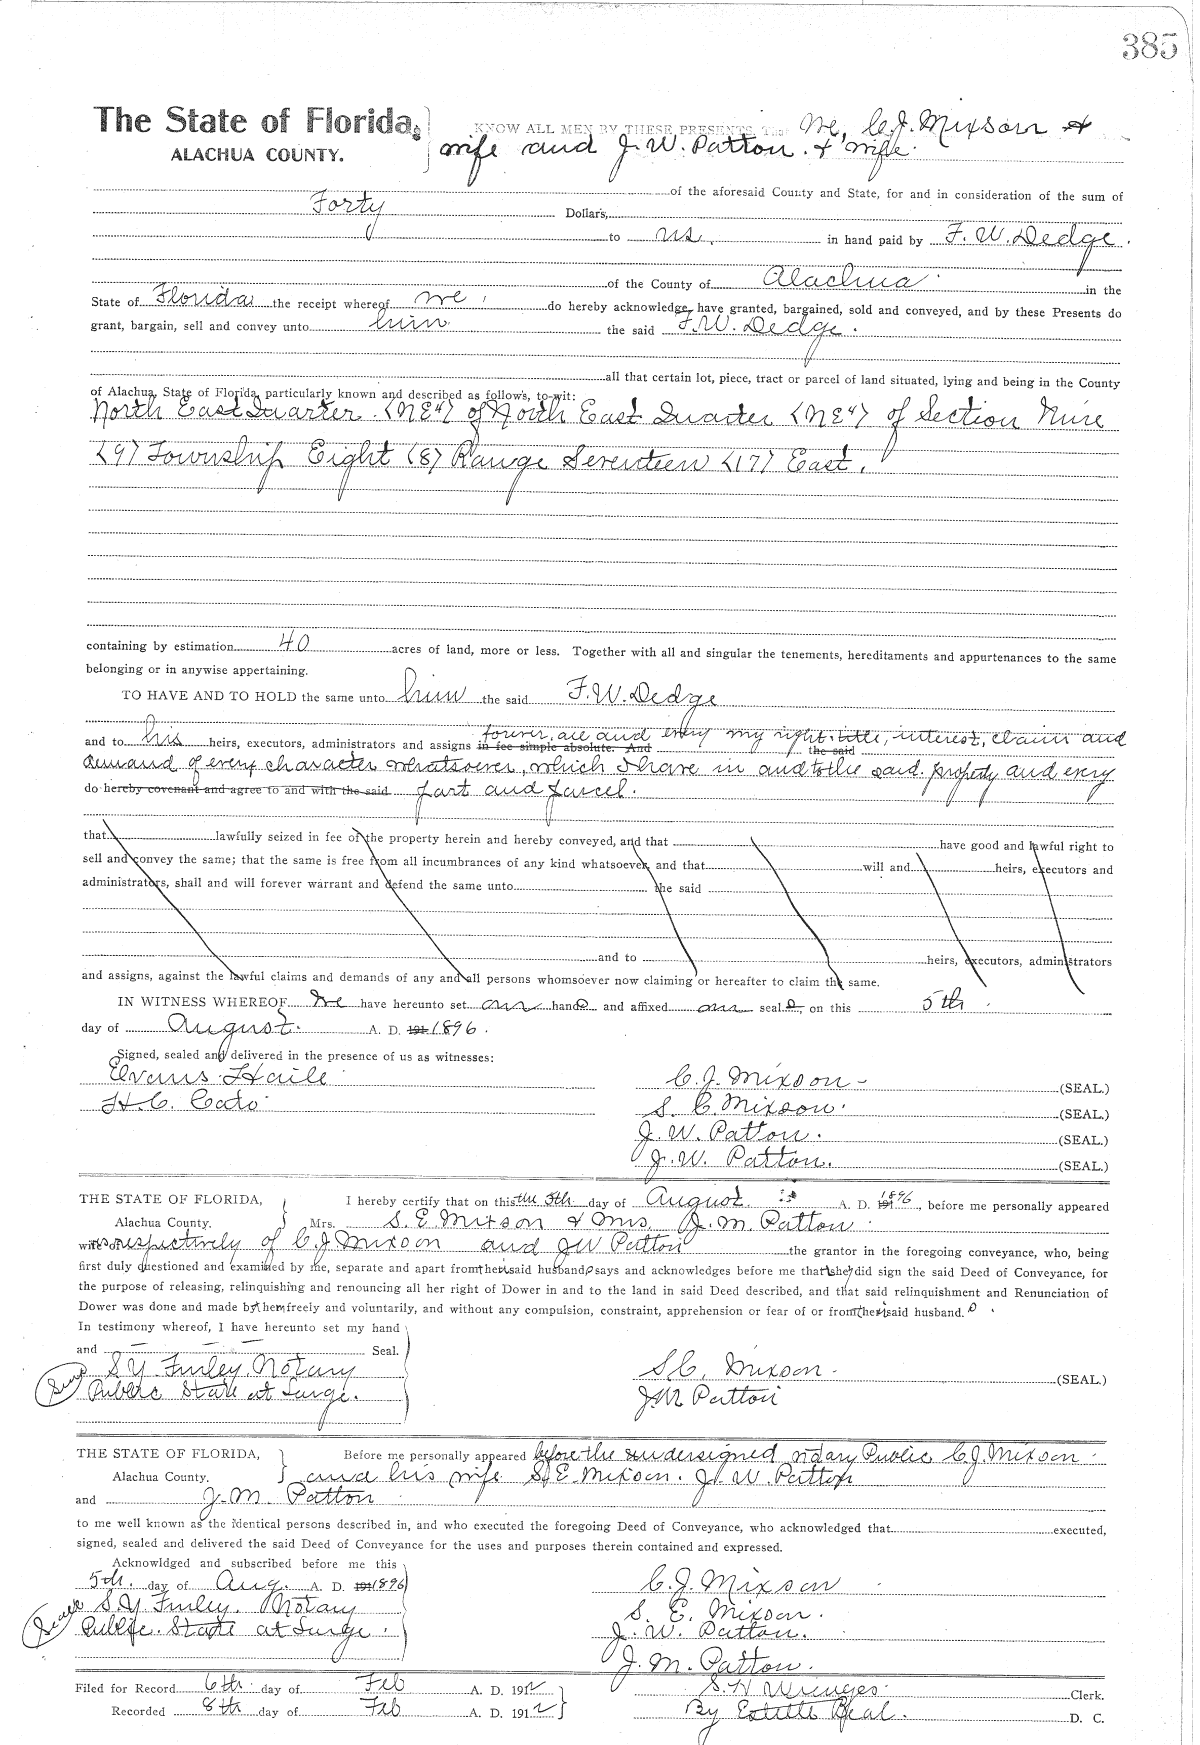 385
The State of Florida, KNOW ALL MEN BY THESE PRESENTS, That We, C.J. Mixson &
ALACHUA COUNTY. wife and J.W. Patton. & wife.
of the aforesaid County and State, for and in consideration of the sum of
Forty Dollars,
to us, in hand paid by F. W. Dedge.
of the County of Alachua in the
State of Florida the receipt whereof we, do hereby acknowledge, have granted, bargained, sold and conveyed, and by these Presents do
grant, bargain, sell and convey unto him the said F.W. Dedge.
all that certain lot, piece, tract or parcel of land situated, lying and being in the County
of Alachua, State of Florida, particularly known and described as follows, to-wit:
North East Quarter (NE4) of North East Quarter (NE4) of Section Nine
(9) Township Eight (8) Range Seventeen (17) East.
containing by estimation 40 acres of land, more or less. Together with all and singular the tenements, hereditaments and appurtenances to the same
belonging or in anywise appertaining.
TO HAVE AND TO HOLD the same unto him the said F.W. Dedge
forever, all and every my right, title, interest, claim and
and to his heirs, executors, administrators and assigns in fee simple absolute. And the said
demand of every character whatsoever, which I have in and to the said property and every
do hereby covenant and agree to and with the said part and parcel.
that lawfully seized in fee of the property herein and hereby conveyed, and that have good and lawful right to
sell and convey the same; that the same is free from all incumbrances of any kind whatsoever, and that will and heirs, executors and
administrators, shall and will forever warrant and defend the same unto the said
and to heirs, executors, administrators
and assigns, against the lawful claims and demands of any and all persons whomsoever now claiming or hereafter to claim the same.
IN WITNESS WHEREOF, We have hereunto set our hands and affixed our seals, on this 5th
day of August. A. D. 191 1896.
Signed, sealed and delivered in the presence of us as witnesses:
Evans Haile C. J. Mixson (SEAL.)
H.C. Cato S. C. Mixson. (SEAL.)
J. W. Patton. (SEAL.)
J. W. Patton. (SEAL.)
THE STATE OF FLORIDA, I hereby certify that on this the 5th day of August A. D. 191 1896, before me personally appeared
Alachua County. Mrs. S. E. Mixson & Mrs. J. M. Patton
respectively of C. J. Mixson and J W Patton the grantor in the foregoing conveyance, who, being
first duly questioned and examined by me, separate and apart from their said husbands says and acknowledges before me that they did sign the said Deed of Conveyance, for
the purpose of releasing, relinquishing and renouncing all her right of Dower in and to the land in said Deed described, and that said relinquishment and Renunciation of
Dower was done and made by them freely and voluntarily, and without any compulsion, constraint, apprehension or fear of or from their said husband.s
In testimony whereof, I have hereunto set my hand
and Seal.
S Y. Finley, Notary S C, Mixson (SEAL.)
Seal Public State at Large. J.M Patton
THE STATE OF FLORIDA, Before me personally appeared before the undersigned notary Public C. J. Mixson
Alachua County. and his wife S. E. Mixson. J. W. Patton
and J. M. Patton
to me well known as the identical persons described in, and who executed the foregoing Deed of Conveyance, who acknowledged that executed,
signed, sealed and delivered the said Deed of Conveyance for the uses and purposes therein contained and expressed.
Acknowldged and subscribed before me this
5th. day of Aug. A. D. 191 1896 C. J. Mixson
Seal S. Y. Finley. Notary S. E. Mixson.
Public. State at Large. J. W. Patton.
J. M. Patton.
Filed for Record 6th day of Feb A. D. 1912 S. H Wienges. Clerk.
Recorded 8th day of Feb A. D. 1912 By Estelle Beal. D. C.